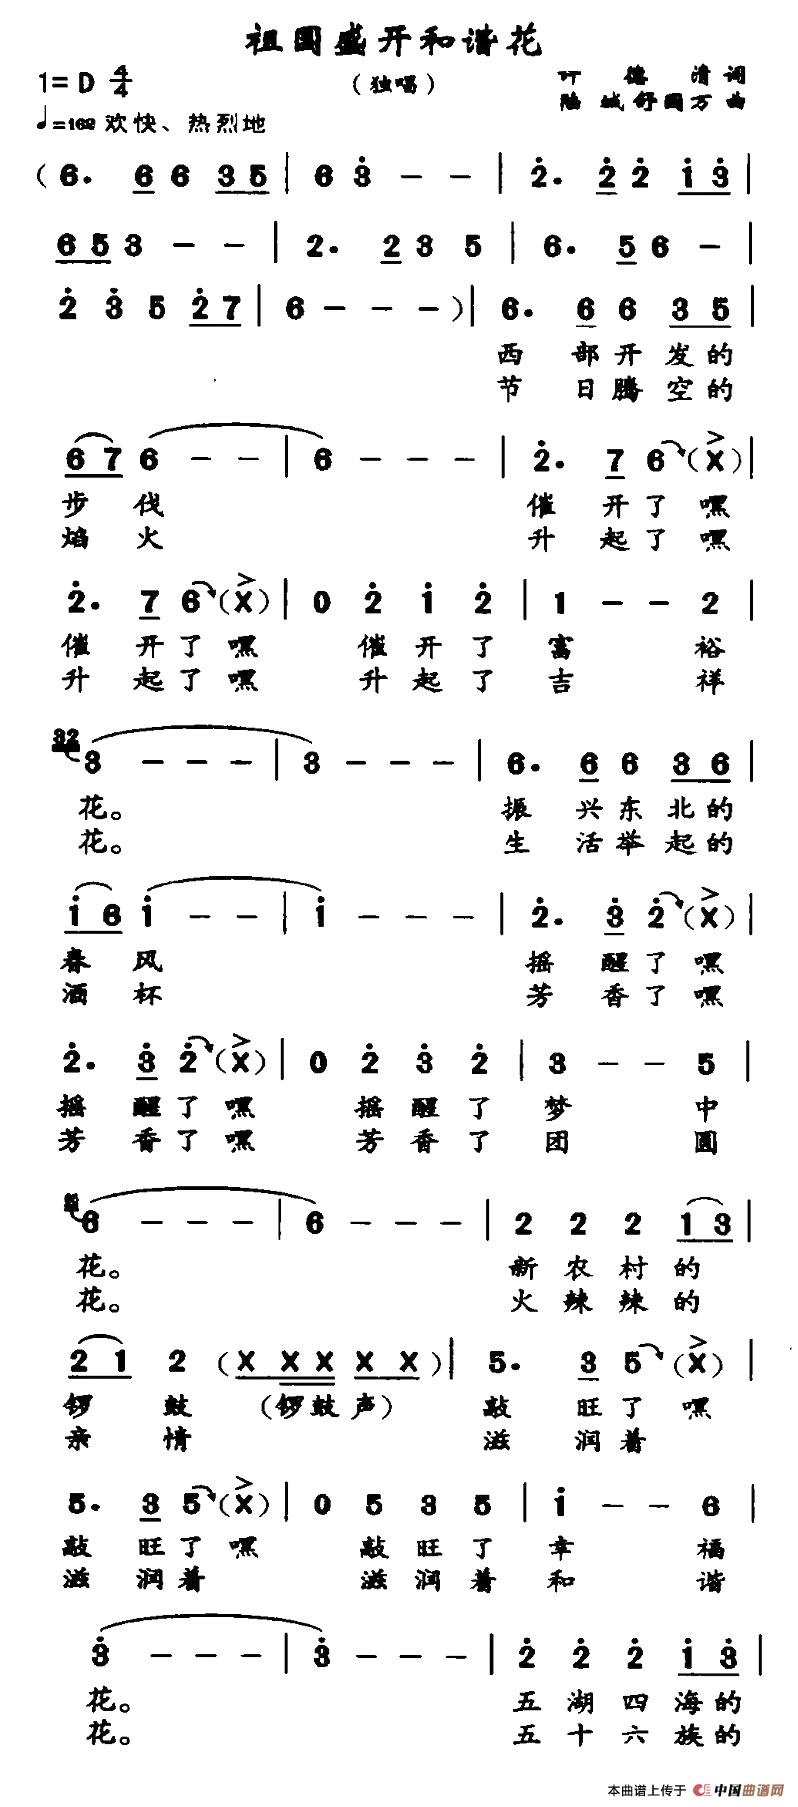 祖国盛开和谐花
1= D 4/4
（独唱）
叶德清 词
♩=162 欢快、热烈地
舒国万 曲
（6. 6 6 3 5 | 6 3̇ - - | 2̇. 2̇ 2̇ 1̇ 3̇ |
6 5 3 - - | 2. 2 3 5 | 6. 5 6 - |
2̇ 3̇ 5 2̇ 7 | 6 - - - ）| 6. 6 6 3 5 |
西 部 开 发 的
节 日 腾 空 的
6 7 6 - - | 6 - - - | 2̇. 7 6 （X）|
步 伐 催 开 了 嘿
焰 火 升 起 了 嘿
2̇. 7 6 （X）| 0 2̇ 1̇ 2̇ | 1 - - 2 |
催 开 了 嘿 催 开 了 富 裕
升 起 了 嘿 升 起 了 吉 祥
32 3 - - - | 3 - - - | 6. 6 6 3 6 |
花。 振 兴 东 北 的
花。 生 活 举 起 的
1̇ 6 1̇ - - | 1̇ - - - | 2̇. 3̇ 2̇ （X）|
春 风 摇 醒 了 嘿
酒 杯 芳 香 了 嘿
2̇. 3̇ 2̇ （X）| 0 2̇ 3̇ 2̇ | 3 - - 5 |
摇 醒 了 嘿 摇 醒 了 梦 中
芳 香 了 嘿 芳 香 了 团 圆
6 - - - | 6 - - - | 2 2 2 1 3 |
花。 新 农 村 的
花。 火 辣 辣 的
2 1 2 （X X X X X）| 5. 3 5 （X）|
锣 鼓 （锣鼓声） 敲 旺 了 嘿
亲 情 滋 润 着
5. 3 5 （X）| 0 5 3 5 | 1̇ - - 6 |
敲 旺 了 嘿 敲 旺 了 幸 福
滋 润 着 滋 润 着 和 谐
3̇ - - - | 3̇ - - - | 2̇ 2̇ 2̇ 1̇ 3̇ |
花。 五 湖 四 海 的
花。 五 十 六 族 的
本曲谱上传于 中国曲谱网